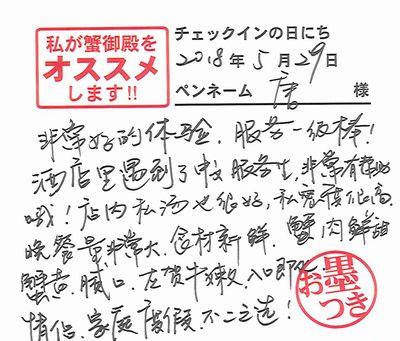 私が蟹御殿を
オススメ
します!!
チェックインの日にち
2018年5月29日
ペンネーム 唐 様
非常好的体验,服务一级棒!
酒店里遇到了中文服务生,非常有帮助
哦!店内私汤也很好,私密度很高
晚餐量非常大,食材新鲜,蟹肉鲜甜
蟹黄腻口,左贺牛嫩,入口即化
情侣、家庭度假不二之选!
お墨
つき